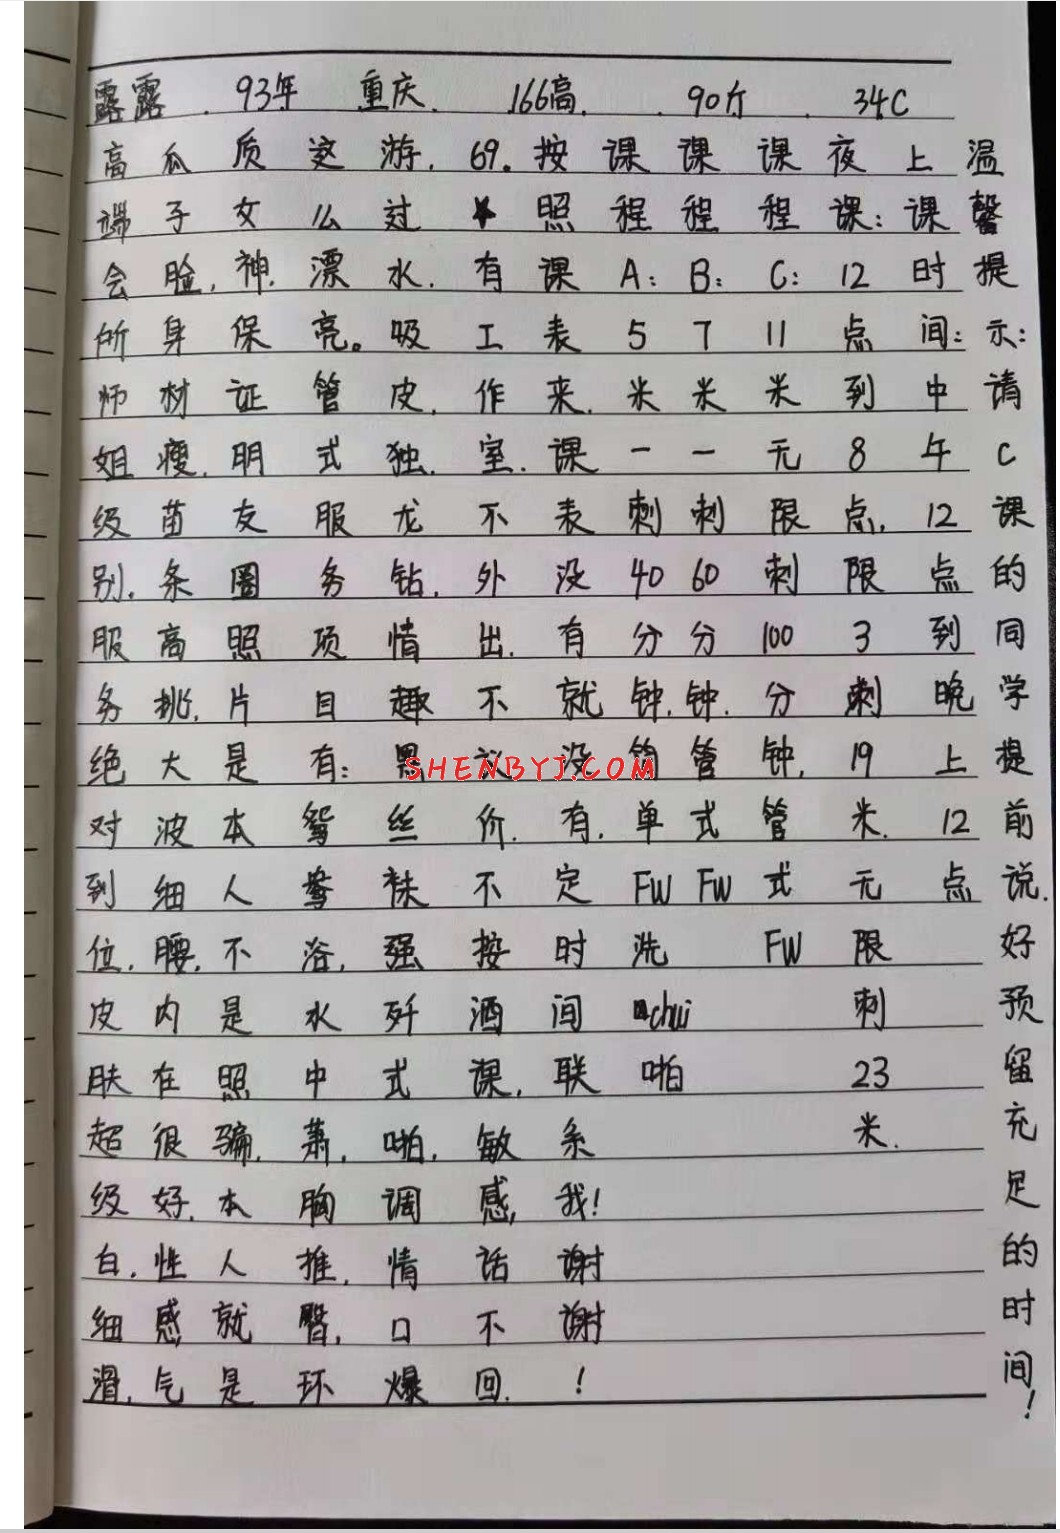 露露 . 93年 重庆. 166高. . 90斤 . 34C
高端会所师姐级别.服务绝对到位,皮肤超级白,细滑,
瓜子脸,身材瘦,苗条高挑,大波细腰,内在很好,性感气
质女神,保证明友圈照片是本人不是照骗,本人就是
这么漂亮。管式服务项目有:鸳鸯浴,水中萧,胸推,臀环
游过水,吸皮,独龙钻,情趣黑丝袜,强歼式啪,调情口爆
69.有工作室,不外出,不议价.不接酒课,敏感话不回.
按照课表来.课表没有就没有.定时间联系我!谢谢!
课程A:5米一刺40分钟,简单FW洗chui啪
课程B:7米一刺60分钟.管式FW
课程C:11米无限刺100分钟,管式FW
夜课:12点到8点,限3刺19米.无限刺23米.
上课时间:中午12点到晚上12点
温馨提示:请C课的同学提前说.好预留充足的时间!
SHENBYJ.COM